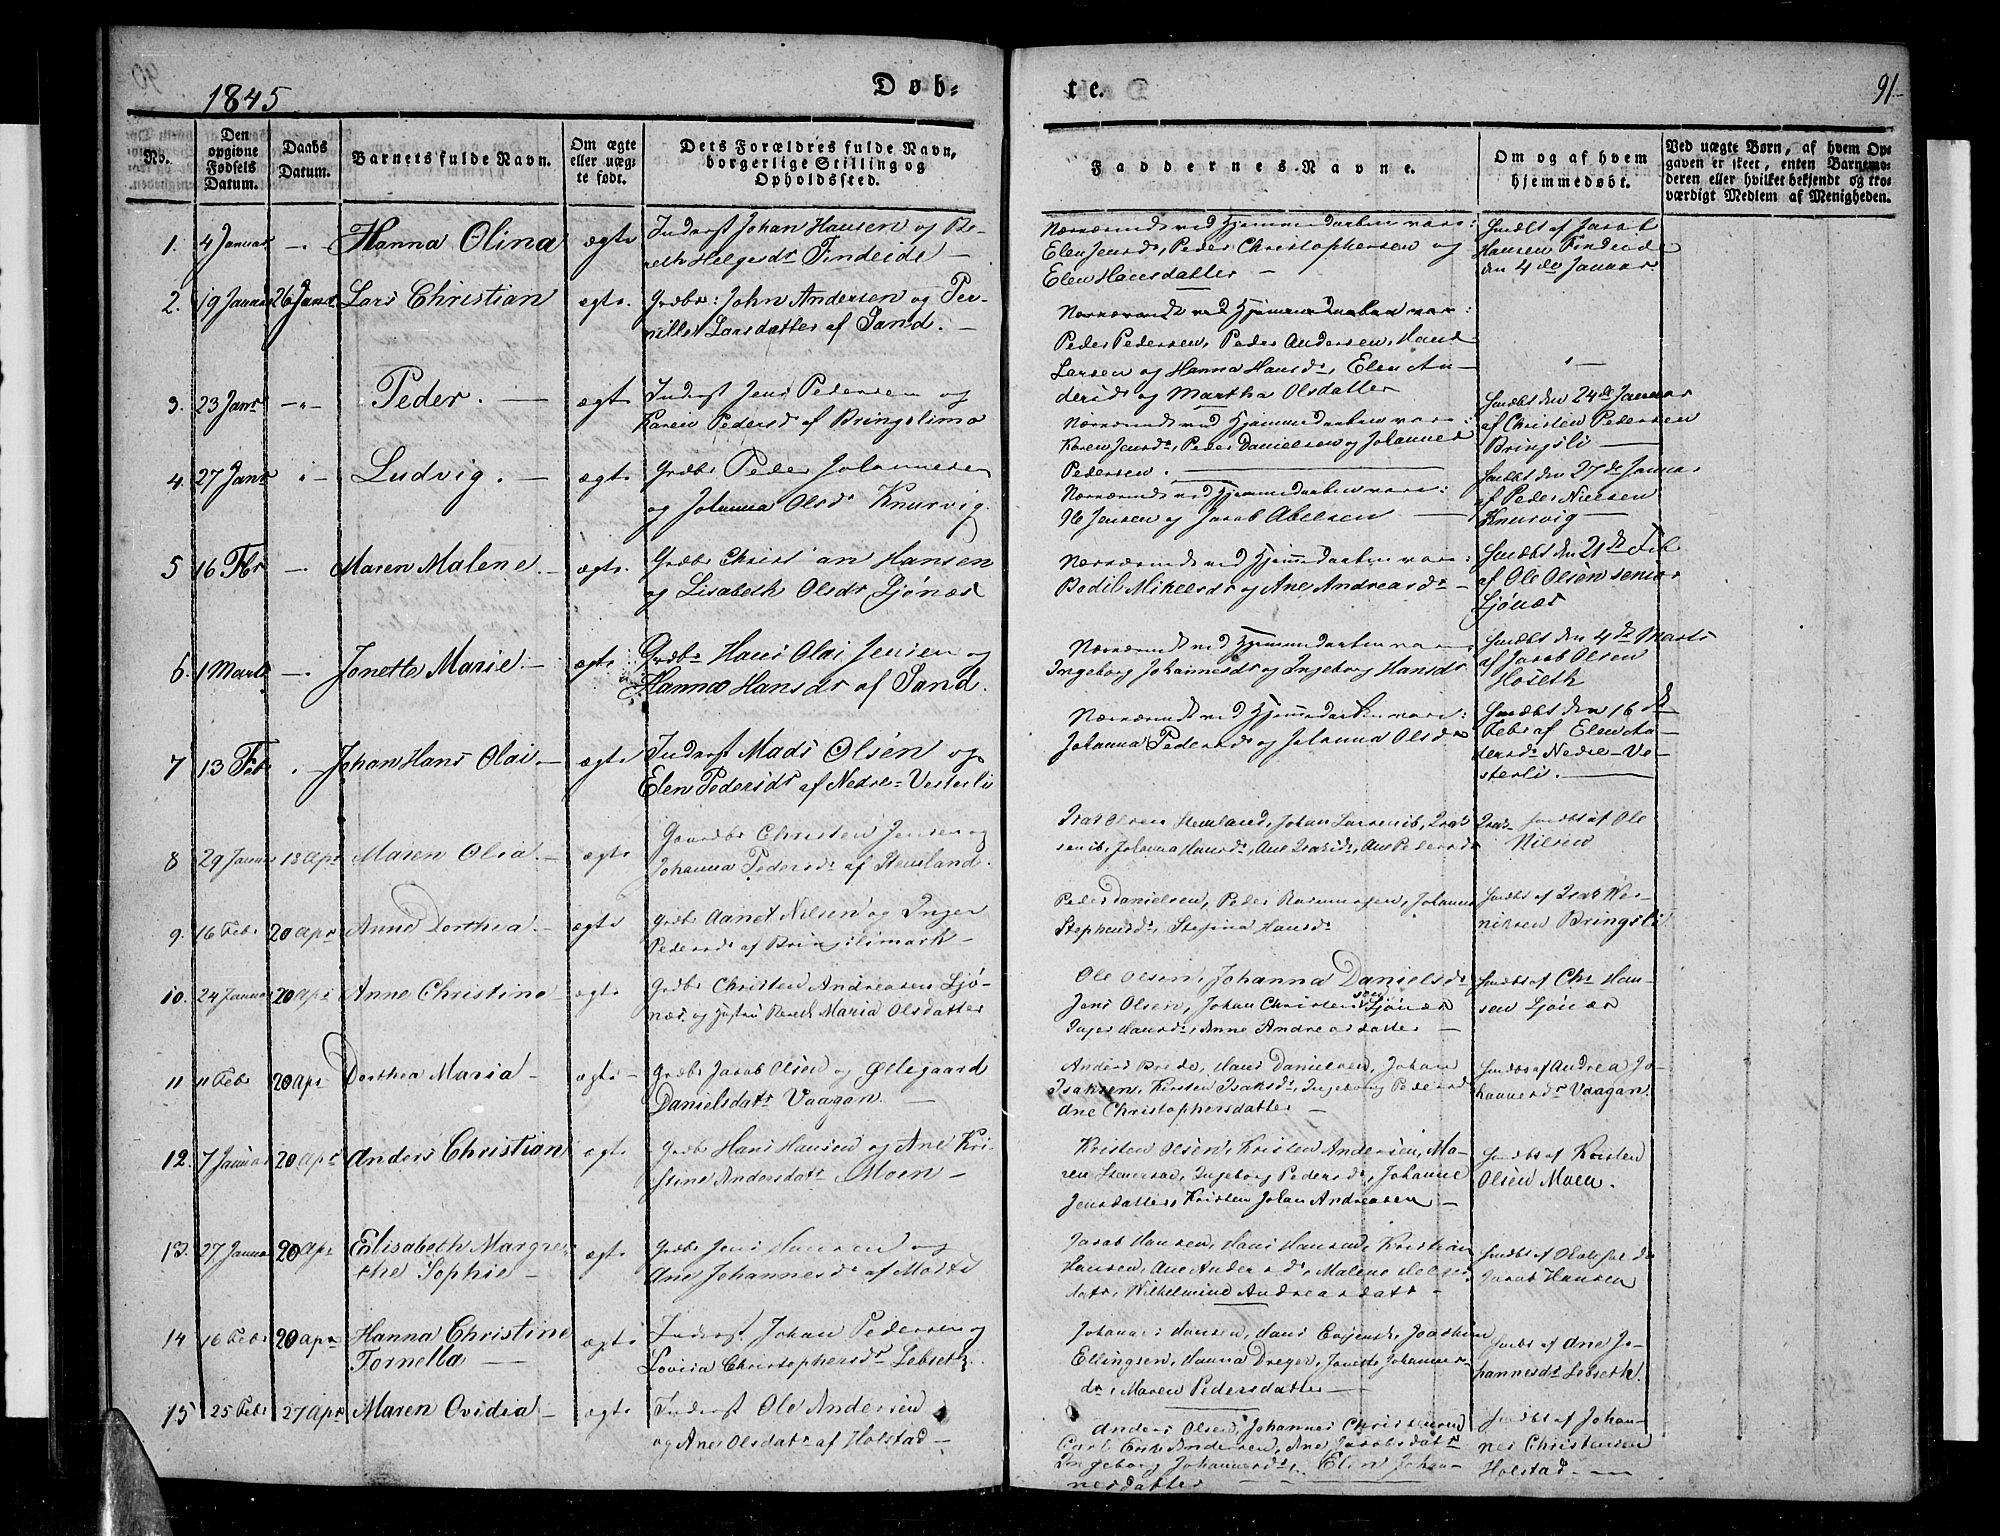 1845
Døb-
te.
91
No.
Den opgivne Fødsels Datum.
Daabs Datum.
Barnets fulde Navn.
Om ægte eller uægte født.
Dets Forældres fulde Navn, borgerlige Stilling og Opholdssted.
Faddernes Navne.
Om og af hvem hjemmedøbt.
Ved uægte Børn, af hvem Opgaven er skeet, enten Barnemoderen eller hvilket bekjendt og troværdigt Medlem af Menigheden.
1. 4 Januar Hanna Olina ægte Inderst Johan Hansen og Be-
reth Helgesdr Findeide
Nærværende ved Hjemmedaaben vare:
Elen Jensdr, Peder Christophersen og
Elen Hansdatter
Hmdbt af Jacob
Hansen Findeide
den 4de Januar
2. 19 Januar 26 Janr Lars Christian ægte Grdbr: John Andersen og Per-
nille Larsdatter af Sand.
Nærværende ved Hjemmedaaben vare:
Peder Pedersen, Peder Andersen, Hans
Larsen og Hanna Hansdr, Elen An-
dersdr og Martha Olsdatter
3. 23 Janr Peder. ægte Inderst Jens Pedersen og
Karen Pedersdr af Bringslimo
Nærværende ved Hjemmedaaben vare:
Karen Jensdr, Peder Danielsen og Johannes
Pedersen.
Hmdbt den 24de Januar
af Christen Pedersen
Bringsli
4. 27 Janr Ludvig. ægte Grdbr Peder Johannesen
og Johanna Olsdr Knurvig.
Nærværende ved Hjemmedaaben vare:
Ole Jensen og Jacob Abelsen
Hmdbt den 27de Januar
af Peder Nielsen
Knurvig
5 16 Fbr Maren Malene. ægte. Grdbr Christian Hansen
og Lisabeth Olsdr Ljønæs
Nærværende ved Hjemmedaaben vare:
Bodil Mikelsdr og Ane Andreasdr
Hmdbt den 21de Feb
af Ole Olsen senior
Ljønæs
6. 1 Marts Jonette Marie. ægte Grdbr Hans Olai Jensen og
Hanna Hansdr af Sand.
Nærværende ved Hjemmedaaben vare
Ingeborg Johannesdr og Ingeborg Hansdr
Hmdbt den 4de Marts
af Jacob Olsen
Hoseth
7 13 Feb Johan Hans Olai. ægte Inderst Mads Olsen og
Elen Pedersdr af Nedre-Vesterli
Nærværende ved Hjemmedaaben vare:
Johanna Pedersdr og Johanna Olsdr
Hmdbt den 16de
Febr af Elen
Nedre-Ve-
sterli.
8 29 Januar 18 Apr Maren Olea. ægte Gaardbr Christen Jensen og
Johanna Pedersdr af Stemland.
Johanna Hansdr, Ane Isaksdr, Ane Pedersdr
Hmdbt af Ole
Nilsen
9. 16 Febr 20 Apr Anne Dorthea. ægte Grdbr Aanet Nilsen og Inger
Pedersdr af Bringslimark
Peder Danielsen, Peder Rasmussen, Johanna
Stephensdr, Stefina Hansdr
Hmdbt af Isak
Bringsli
10. 24 Januar 20 Apr Anne Christine ægte Grdbr Christen Andreasen Ljø-
næs og Hustru Maria Olsdatter
Ole Olsen, Johanna Danielsdr
Jens Olsen, Johan Christensen Ljønæs
Inger Hansdr, Anne Andreasdatter
Hmdbt af Chr Han-
sen Ljønæs
11 11 Febr 20 Apr Dorthea Maria ægte Grdbr Jacob Olsen og Øllegaard
Danielsdatr Vaagan.
Anders Brede, Hans Danielsen, Johan
Isaksen, Kirsten Isaksdr, Ingeborg Pedersdr
Ane Christophersdatter
Hmdbt af Andrea Jo-
hannesdr Vaagan.
12. 7 Januar 20 Apr Anders Christian ægte Grdbr Hans Hansen og Ane Kri-
stine Andersdatr Moen
Kristen Olsen, Kristen Andersen, Ma-
ren, Ingeborg Pedersdr, Johanne
Jensdatter, Kristen Johan Andreasen
Hmdbt af Kristen
Olsen Moen.
13. 27 Januar 20 Apr Elisabeth Margre-
the Sophie ægte Grdbr Jens Hansen og
Ane Johannesdr af
Jacob Hansen, Hans Hansen, Kristian
Hansen, Ane Andersdr, Malene
datr, Wilhelmine Andreasdatr
Hmdbt af
Jacob Hansen
14 16 Febr 20 Apr Hanna Christine
Tornella ægte Inderst Johan Pedersen og
Lovisa Christophersdr Lebseth.
Johannes Hansen, Hans, Joachim
Ellingsen, Hanna Dreyer, Jonette Johannes-
dr, Maren Pedersdatter
Hmdbt af Ane Jo-
hannesdr Lebseth.
15 25 Febr 27 Apr Maren Ovidia ægte Inderst Ole Andersen
og Ane Olsdatr af Holstad
Anders Olsen, Johannes Christensen
Carl Andersen, Ane Jacobsdatr
Ingeborg Johannesdr, Elen Johan-
nesdatter
Hmdbt af Johan-
nes Christensen
Holstad